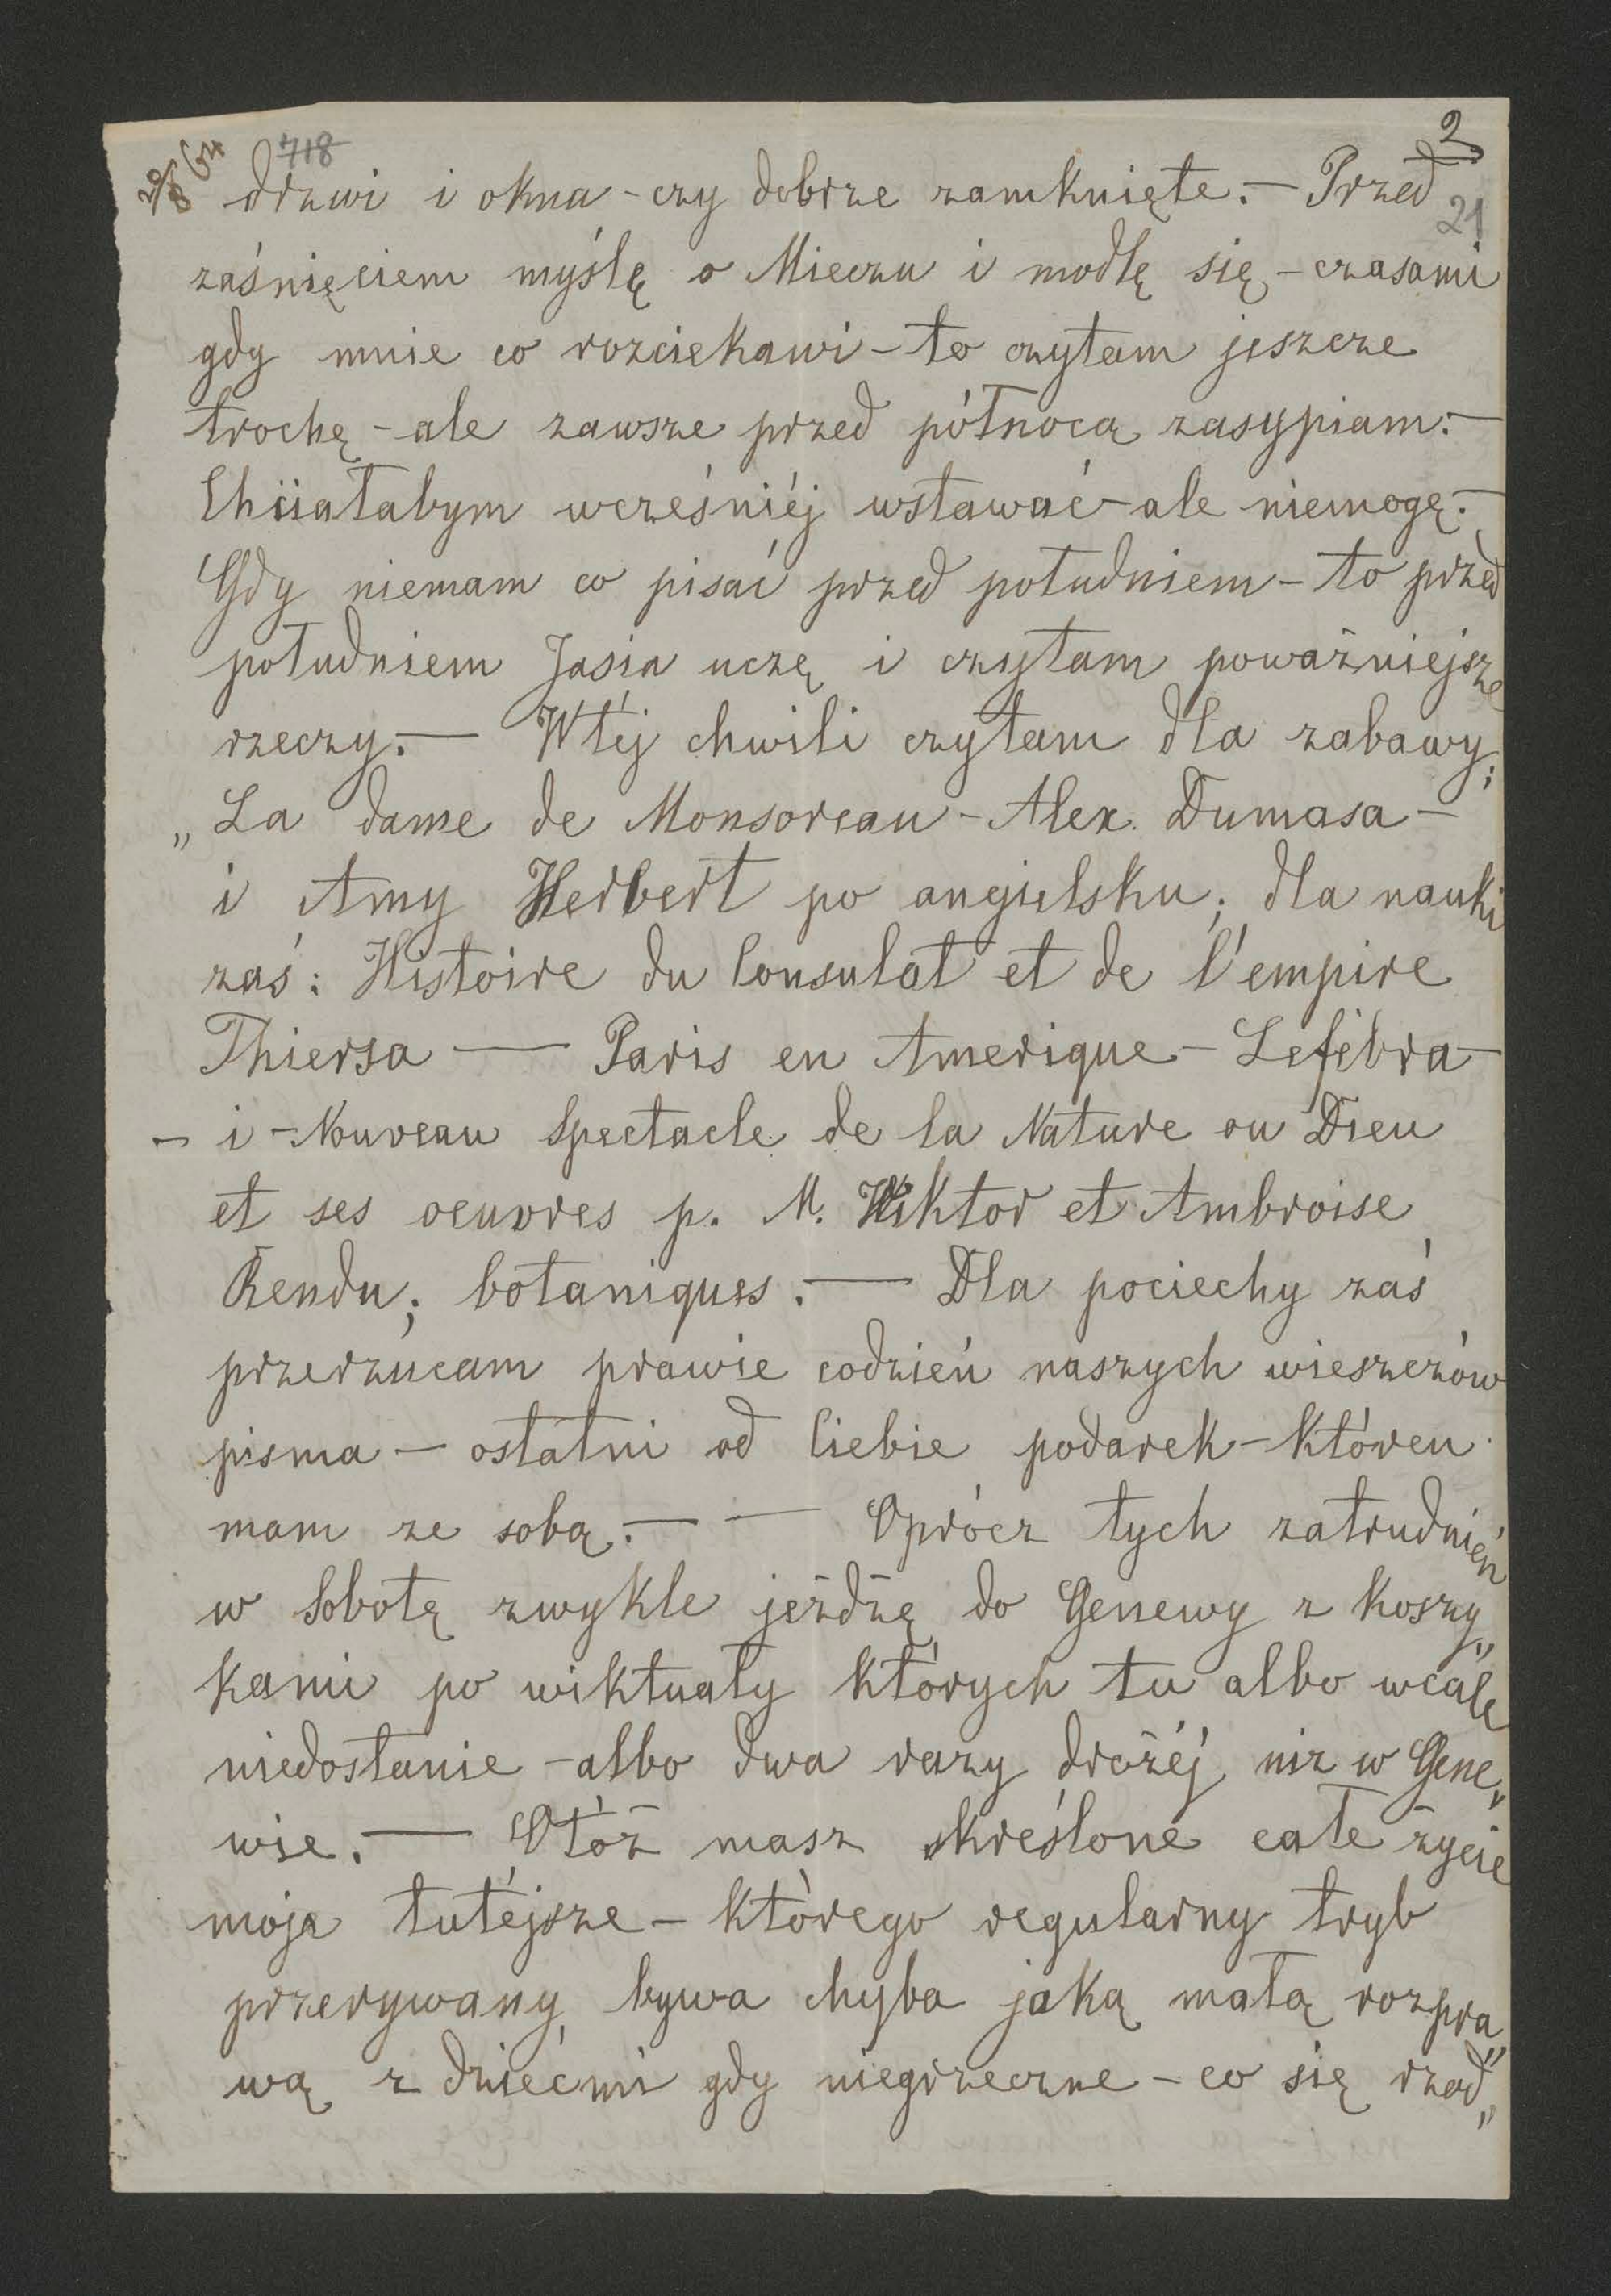 20/8 64 718 2
drzwi i okna - czy dobrze zamknięte. — Przed
21
zaśnięciem myślę o Mieczu i modlę się - czasami
gdy mnie co rozciekawi - to czytam jeszcze
trochę - ale zawsze przed północą zasypiam. —
Chciałabym wcześniéj wstawać - ale niemogę. —
Gdy niemam co pisać przed południem - to przed
południem Jasia uczę i czytam poważniejsze
rzeczy. — W téj chwili czytam dla zabawy;
„La dame de Monsoreau - Alex. Dumasa —
i Amy Herbert po angielsku; dla nauki
zaś: Histoire du Consulat et de l'empire
Thiersa — Paris en Amerique - Lefébra —
— i - Nouveau Spectacle de la Nature ou Dieu
et ses oeuvres p. M. Wiktor et Ambroise
Rendu; botaniques. — Dla pociechy zaś
przerzucam prawie codzień naszych wieszczów
pisma — ostatni od Ciebie podarek - któren
mam ze sobą. — — Oprócz tych zatrudnień
w Sobotę zwykle jeżdżę do Genewy z koszy„
kami po wiktuały których tu albo wcale
niedostanie - albo dwa razy drożéj niz w Gene„
wie. — Otóż masz skreślone całe życie
moje tutéjsze - którego regularny tryb
przerywany bywa chyba jaką małą rozpra„
wą z dziećmi gdy niegrzeczne - co się rzad„